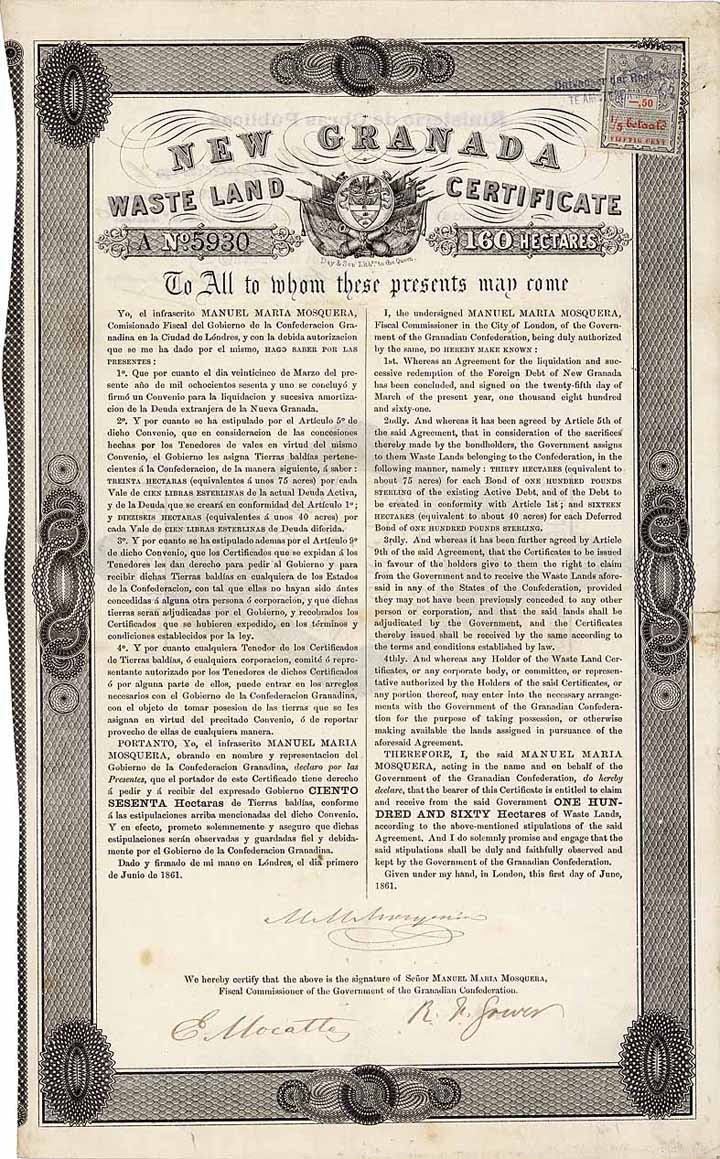 Ministerio de Obras Publicas
TE AM
—.50
1/5 betaald
VIJFTIG CENT
NEW GRANADA
WASTE LAND CERTIFICATE
A No. 5930
160 HECTARES
Day & Son Lith.rs to the Queen.
To All to whom these presents may come
Yo, el infrascrito MANUEL MARIA MOSQUERA,
Comisionado Fiscal del Gobierno de la Confederacion Gra-
nadina en la Ciudad de Lóndres, y con la debida autorizacion
que se me ha dado por el mismo, HAGO SABER POR LAS
PRESENTES :
1º. Que por cuanto el dia veinticinco de Marzo del pre-
sente año de mil ochocientos sesenta y uno se concluyó y
firmó un Convenio para la liquidacion y sucesiva amortiza-
cion de la Deuda extranjera de la Nueva Granada.
2º. Y por cuanto se ha estipulado por el Artículo 5º de
dicho Convenio, que en consideracion de las concesiones
hechas por los Tenedores de vales en virtud del mismo
Convenio, el Gobierno les asigna Tierras baldías pertene-
cientes á la Confederacion, de la manera siguiente, á saber :
TREINTA HECTARAS (equivalentes á unos 75 acres) por cada
Vale de CIEN LIBRAS ESTERLINAS de la actual Deuda Activa,
y de la Deuda que se creará en conformidad del Artículo 1º ;
y DIEZISEIS HECTARAS (equivalentes á unos 40 acres) por
cada Vale de CIEN LIBRAS ESTERLINAS de Deuda diferida.
3º. Y por cuanto se ha estipulado ademas por el Artículo 9º
de dicho Convenio, que los Certificados que se expidan á los
Tenedores les dan derecho para pedir al Gobierno y para
recibir dichas Tierras baldías en cualquiera de los Estados
de la Confederacion, con tal que ellas no hayan sido ántes
concedidas á alguna otra persona ó corporacion, y que dichas
tierras serán adjudicadas por el Gobierno, y recobrados los
Certificados que se hubieren expedido, en los términos y
condiciones establecidos por la ley.
4º. Y por cuanto cualquiera Tenedor de los Certificados
de Tierras baldías, ó cualquiera corporacion, comité ó repre-
sentante autorizado por los Tenedores de dichos Certificados
ó por alguna parte de ellos, puede entrar en los arreglos
necesarios con el Gobierno de la Confederacion Granadina,
con el objeto de tomar posesion de las tierras que se les
asignan en virtud del precitado Convenio, ó de reportar
provecho de ellas de cualquiera manera.
PORTANTO, Yo, el infrascrito MANUEL MARIA
MOSQUERA, obrando en nombre y representacion del
Gobierno de la Confederacion Granadina, declaro por las
Presentes, que el portador de este Certificado tiene derecho
á pedir y á recibir del expresado Gobierno CIENTO
SESENTA Hectaras de Tierras baldías, conforme
á las estipulaciones arriba mencionadas del dicho Convenio.
Y en efecto, prometo solemnemente y aseguro que dichas
estipulaciones serán observadas y guardadas fiel y debida-
mente por el Gobierno de la Confederacion Granadina.
Dado y firmado de mi mano en Lóndres, el dia primero
de Junio de 1861.
I, the undersigned MANUEL MARIA MOSQUERA,
Fiscal Commissioner in the City of London, of the Govern-
ment of the Granadian Confederation, being duly authorized
by the same, DO HEREBY MAKE KNOWN :
1st. Whereas an Agreement for the liquidation and suc-
cessive redemption of the Foreign Debt of New Granada
has been concluded, and signed on the twenty-fifth day of
March of the present year, one thousand eight hundred
and sixty-one.
2ndly. And whereas it has been agreed by Article 5th of
the said Agreement, that in consideration of the sacrifices
thereby made by the bondholders, the Government assigns
to them Waste Lands belonging to the Confederation, in the
following manner, namely : THIRTY HECTARES (equivalent to
about 75 acres) for each Bond of ONE HUNDRED POUNDS
STERLING of the existing Active Debt, and of the Debt to
be created in conformity with Article 1st ; and SIXTEEN
HECTARES (equivalent to about 40 acres) for each Deferred
Bond of ONE HUNDRED POUNDS STERLING.
3rdly. And whereas it has been further agreed by Article
9th of the said Agreement, that the Certificates to be issued
in favour of the holders give to them the right to claim
from the Government and to receive the Waste Lands afore-
said in any of the States of the Confederation, provided
they may not have been previously conceded to any other
person or corporation, and that the said lands shall be
adjudicated by the Government, and the Certificates
thereby issued shall be received by the same according to
the terms and conditions established by law.
4thly. And whereas any Holder of the Waste Land Cer-
tificates, or any corporate body, or committee, or represen-
tative authorized by the Holders of the said Certificates, or
any portion thereof, may enter into the necessary arrange-
ments with the Government of the Granadian Confedera-
tion for the purpose of taking possession, or otherwise
making available the lands assigned in pursuance of the
aforesaid Agreement.
THEREFORE, I, the said MANUEL MARIA
MOSQUERA, acting in the name and on behalf of the
Government of the Granadian Confederation, do hereby
declare, that the bearer of this Certificate is entitled to claim
and receive from the said Government ONE HUN-
DRED AND SIXTY Hectares of Waste Lands,
according to the above-mentioned stipulations of the said
Agreement. And I do solemnly promise and engage that the
said stipulations shall be duly and faithfully observed and
kept by the Government of the Granadian Confederation.
Given under my hand, in London, this first day of June,
1861.
We hereby certify that the above is the signature of Señor MANUEL MARIA MOSQUERA,
Fiscal Commissioner of the Government of the Granadian Confederation.
E Mocatta